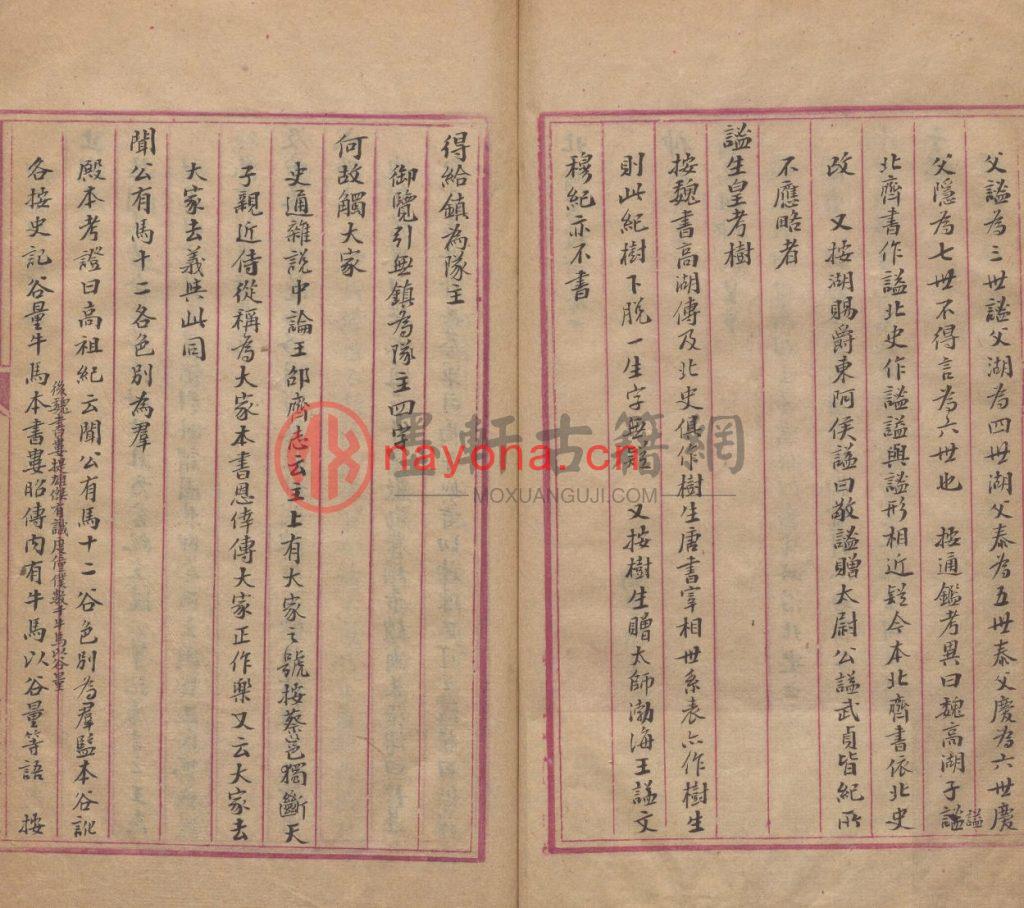 父謐為三世謐父湖為四世湖父泰為五世泰父慶為六世慶
父隱為七世不得言為六世也 按通鑑考異曰魏高湖子謐
謐
北齊書作謐北史作謐謐與謐形相近疑今本北齊書依北史
改 又按湖賜爵東阿侯謚曰敬謐贈太尉公謚武貞皆紀所
不應略者
謐生皇考樹
按魏書高湖傳及北史俱作樹生唐書宰相世系表亦作樹生
則此紀樹下脫一生字無疑又按樹生贈太師渤海王謚文
穆紀亦不書
得給鎮為隊主
御覽引無鎮為隊主四字
何故觸大家
史通雜說中論王邵齊志云主上有大家之號按蔡邕獨斷天
子親近侍從稱為大家本書恩倖傳大家正作樂又云大家去
大家去義與此同
聞公有馬十二各色別為羣
殿本考證曰高祖紀云聞公有馬十二谷色別為羣監本谷訛
各按史記谷量牛馬本書婁昭傳內有牛馬以谷量等語 按
後魏書婁提雄傑有識度僮僕數千牛馬以谷量
墨軒古籍網
nayona.cn
MOXUANGUJI.COM